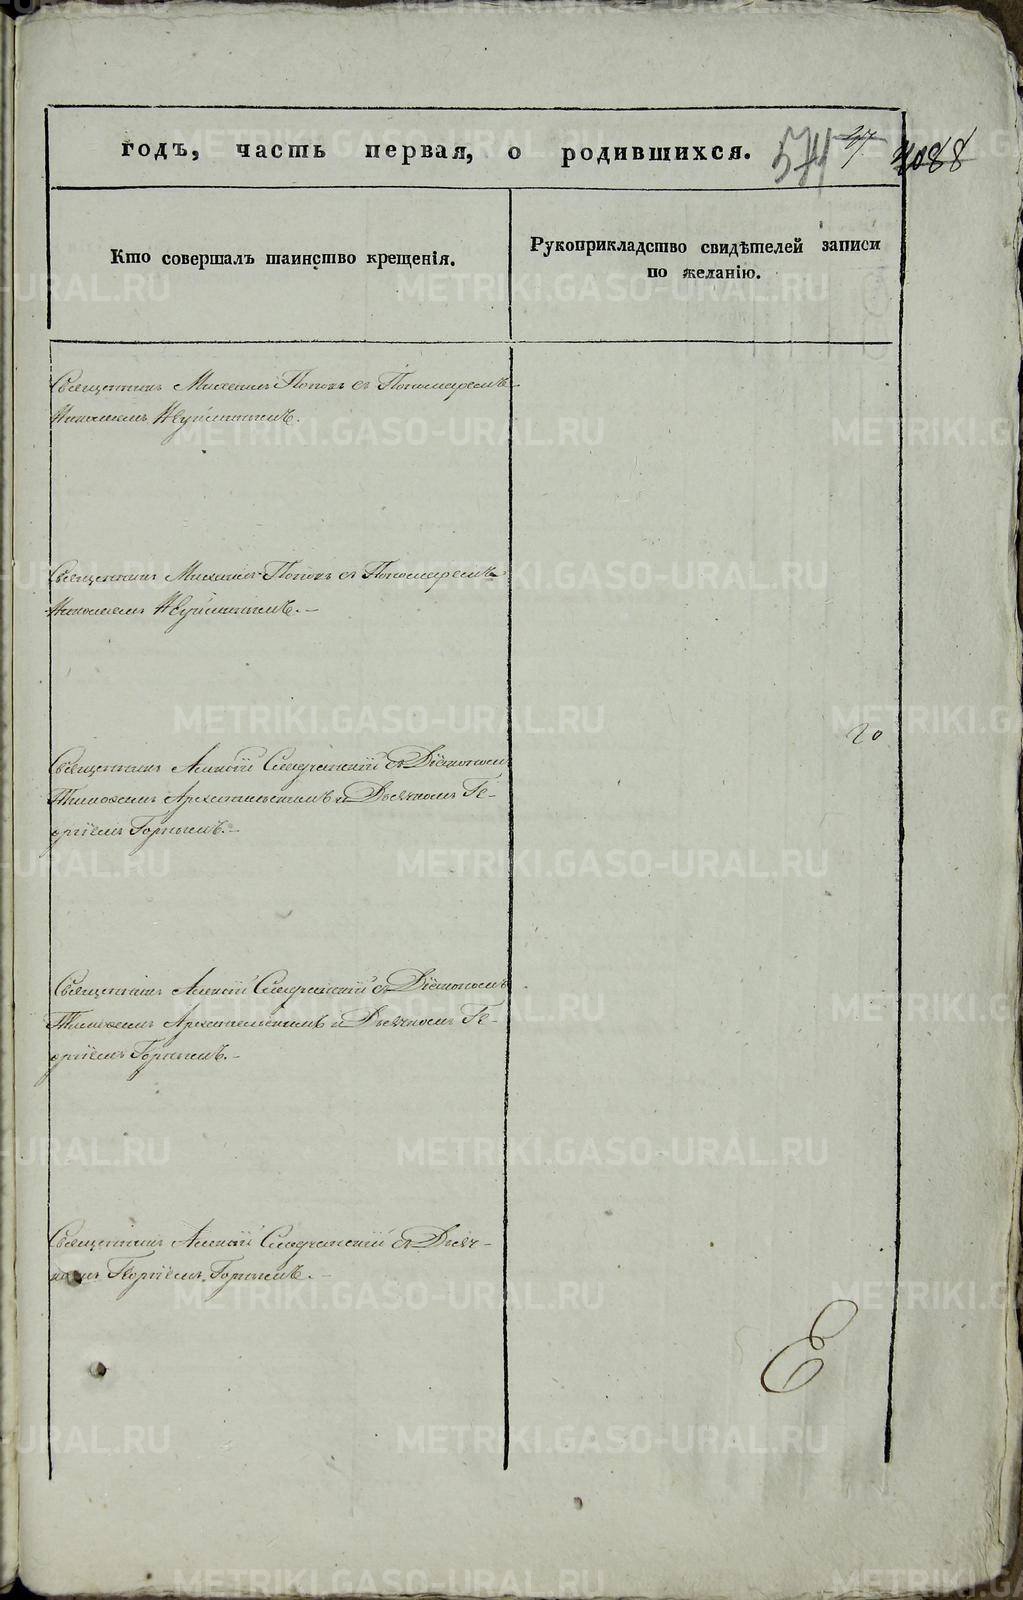 годъ, часть первая, о родившихся. 574
Кто совершалъ таинство крещенія.
Рукоприкладство свидѣтелей записи
по желанію.
Священникъ Михаилъ Поповъ съ Пономаремъ
Николаемъ
Священникъ Михаилъ Поповъ съ Пономаремъ
Николаемъ
20
Священникъ Алексій съ Діакономъ
Тимофеемъ Архангельскимъ и Дьячкомъ Ге-
оргіемъ Горнымъ.-
Священникъ Алексій съ Діакономъ
Тимофеемъ Архангельскимъ и Дьячкомъ Ге-
оргіемъ Горнымъ.-
Священникъ Алексій съ Дьяч-
комъ Георгіемъ Горнымъ.-
METRIKI.GASO-URAL.RU